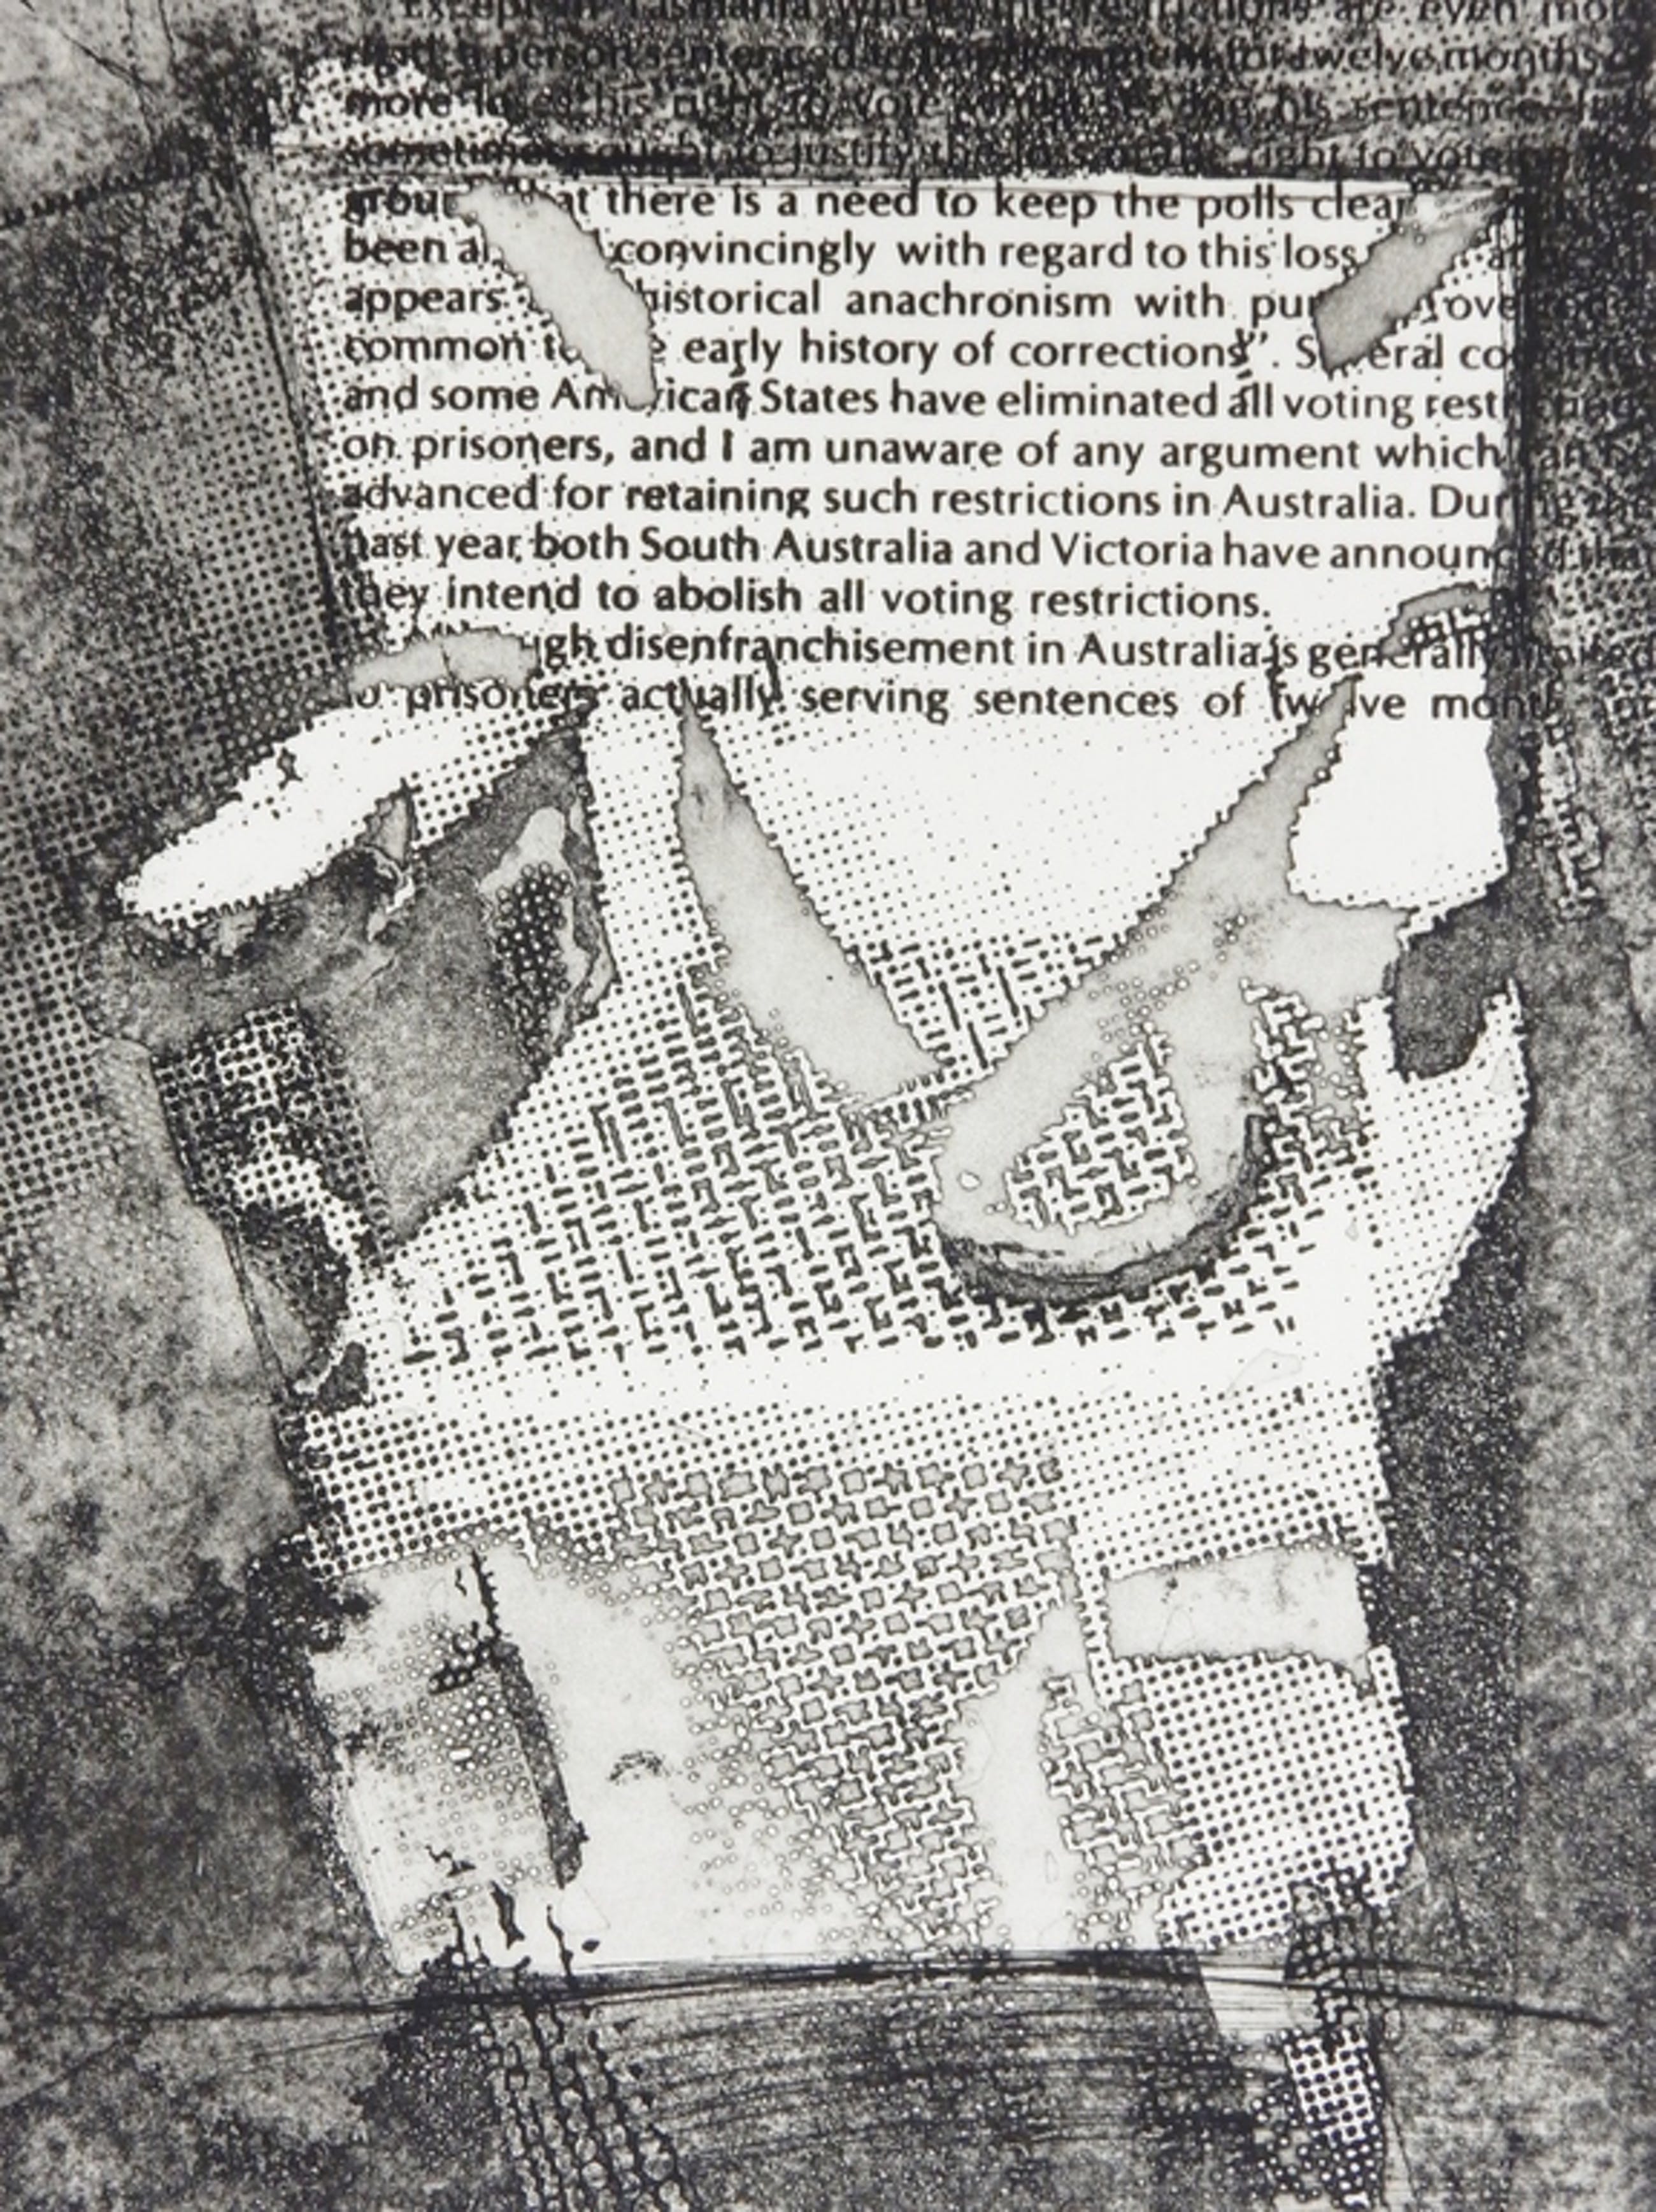 Except in Tasmania where the restrictions are even
a person sentenced to imprisonment for twelve months
more loses his right to vote his sentence
sometimes sought to justify the loss of the right to vote
that there is a need to keep the polls clear
been convincingly with regard to this loss
appears historical anachronism with
common early history of corrections". Several
and some American States have eliminated all voting
on prisoners, and I am unaware of any argument which
advanced for retaining such restrictions in Australia. During the
past year both South Australia and Victoria have announced that
they intend to abolish all voting restrictions.
disenfranchisement in Australia is generally limited
to prisoners actually serving sentences of twelve months or